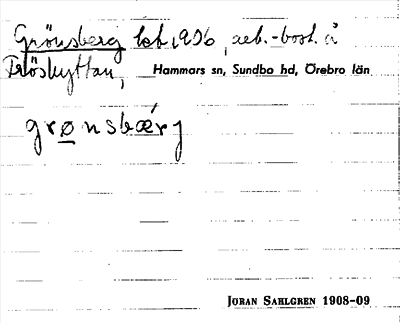 Grönsberg lht 1906, arb.-bost. å
Fröshyttan, Hammars sn, Sundbo hd, Örebro län
grønsbærj
JÖRAN SAHLGREN 1908-09